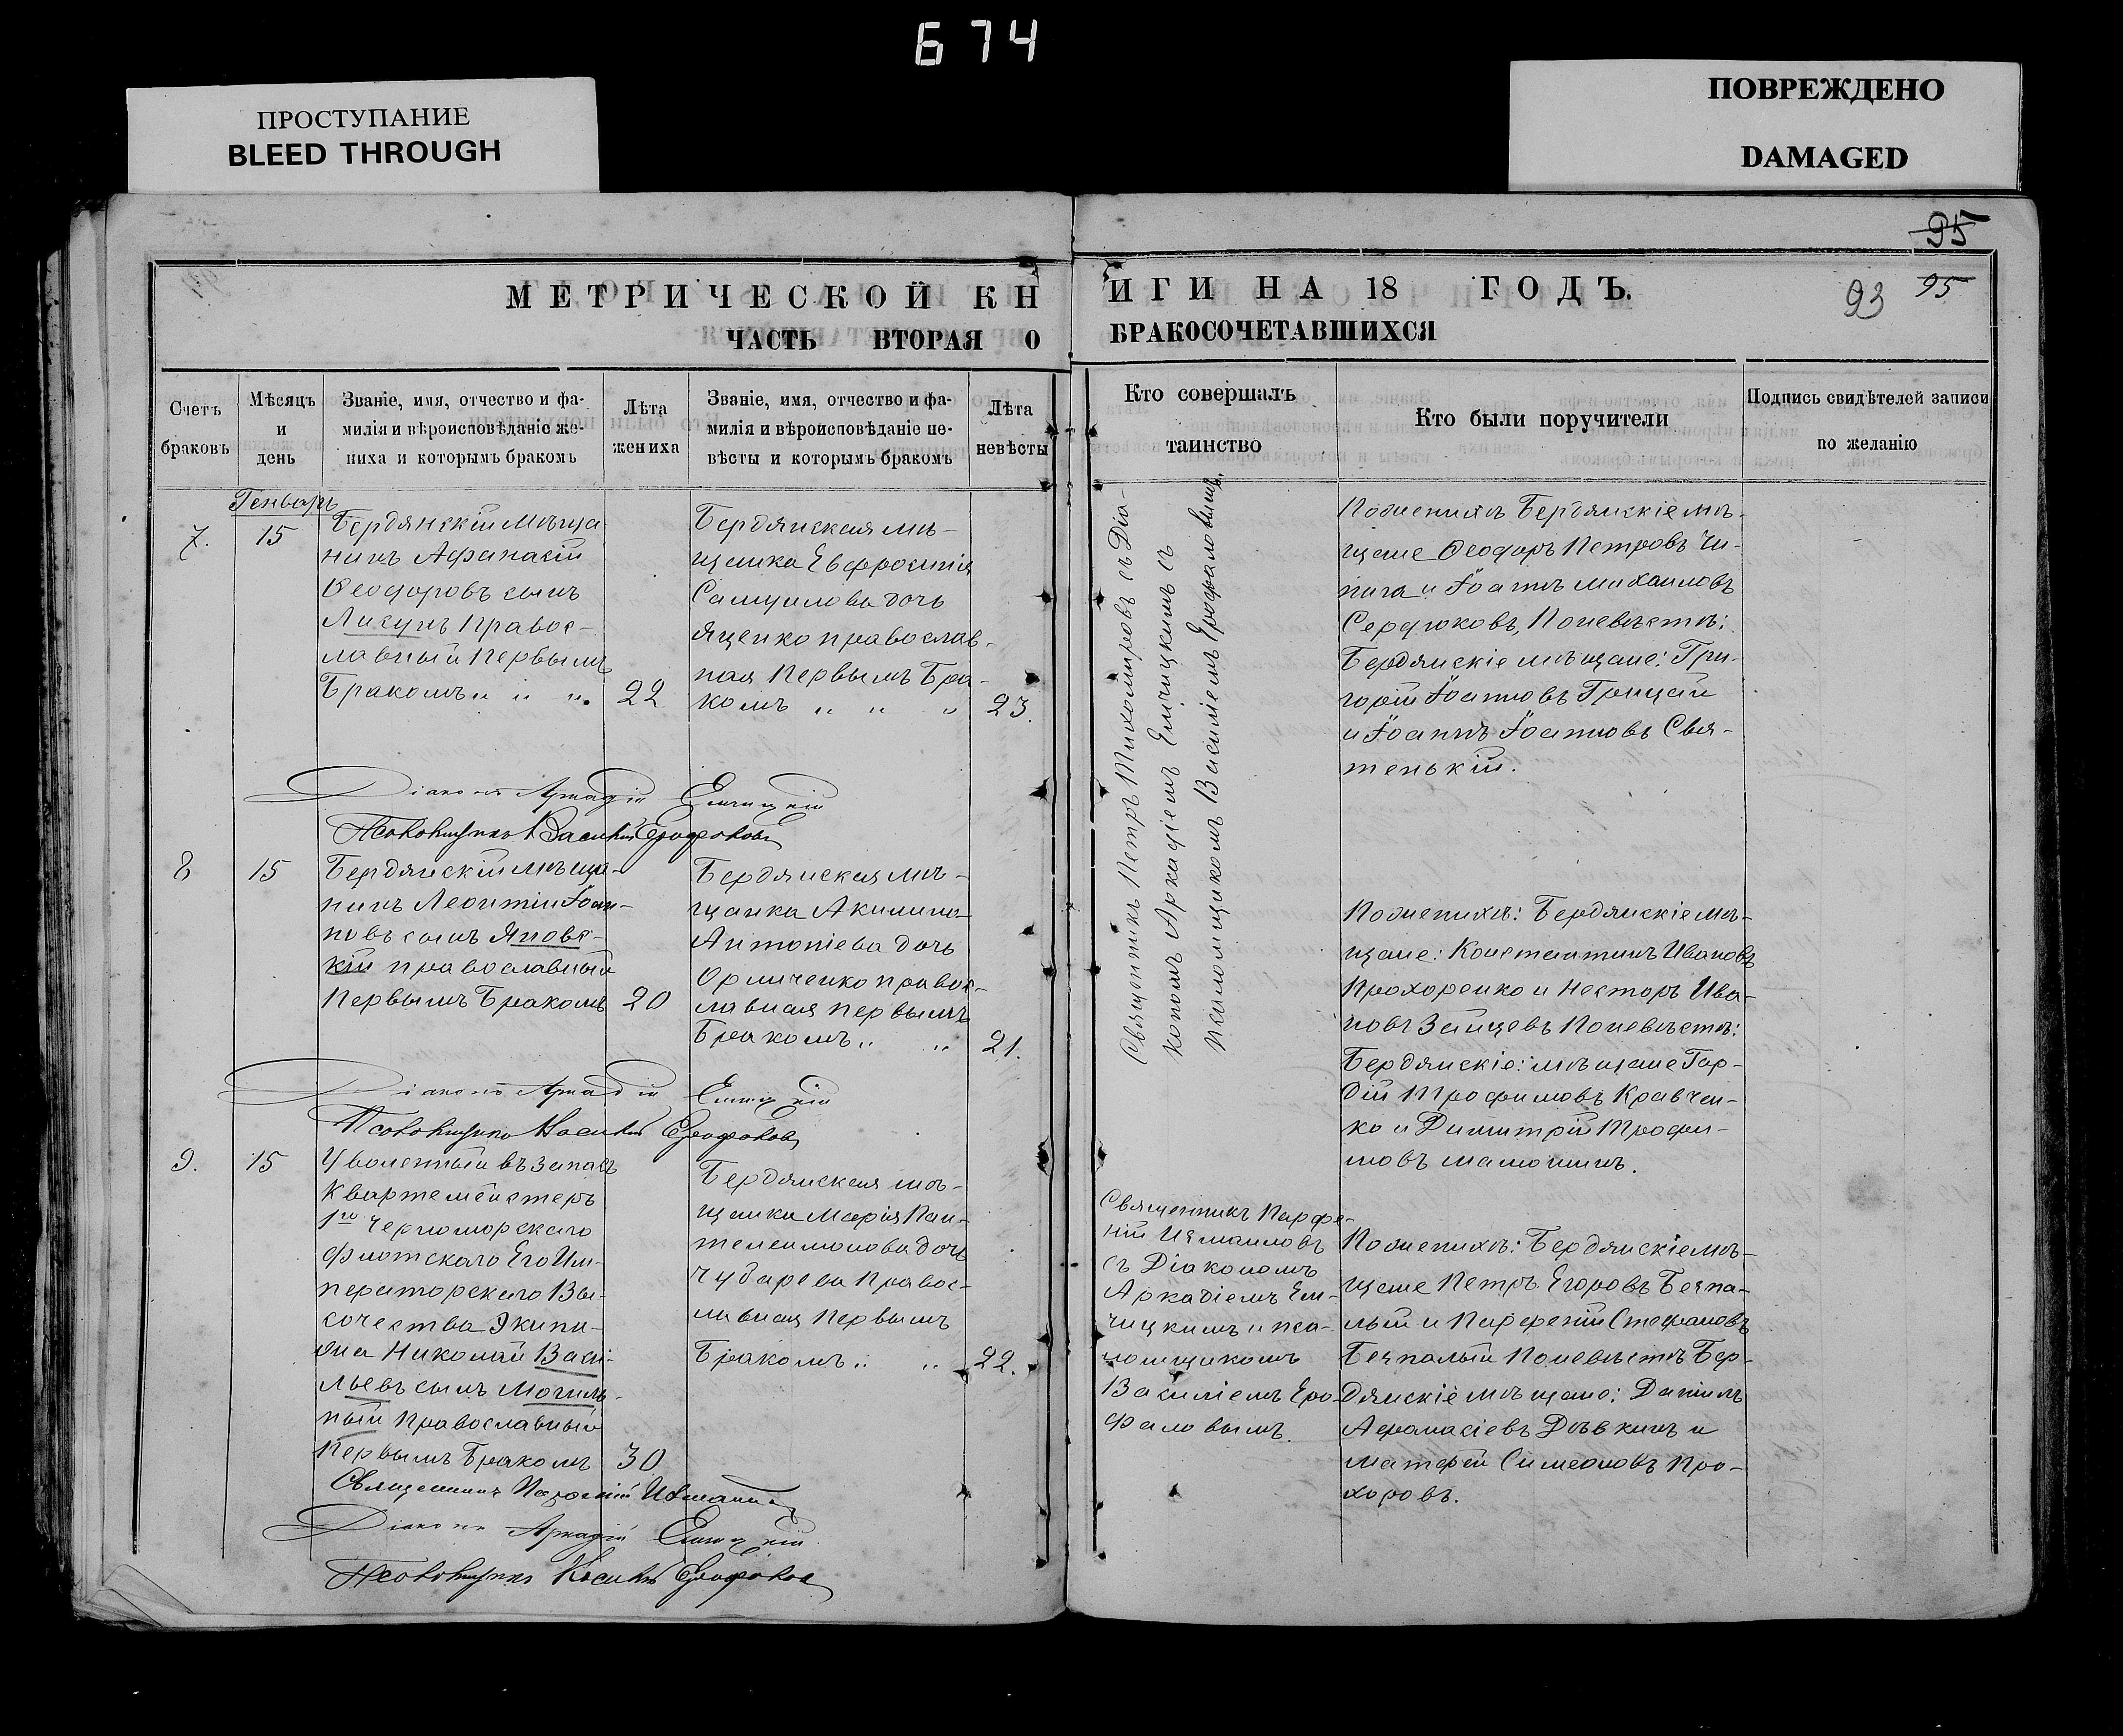 674
ПРОСТУПАНИЕ
BLEED THROUGH
ПОВРЕЖДЕНО
DAMAGED
95
МЕТРИЧЕСКОЙ КН
ИГИ НА 18 ГОДЪ.
93
95
ЧАСТЬ ВТОРАЯ О
БРАКОСОЧЕТАВШИХСЯ
Счетъ
браковъ
Мѣсяцъ
и
день
Званіе, имя, отчество и фа-
милія и вѣроисповѣданіе же-
ниха и которымъ бракомъ
Лѣта
жениха
Званіе, имя, отчество и фа-
милія и вѣроисповѣданіе не-
вѣсты и которымъ бракомъ
Лѣта
невѣсты
Кто совершалъ
таинство
Кто были поручители
Подпись свидѣтелей записи
по желанію
Генварь
7.
15
Бердянскій Мѣща
нинъ Афанасій
Ѳеодоровъ сынъ
Лисунъ Правос-
лавный Первымъ
Бракомъ " " "
22
Бердянская мѣ-
щанка Евфросинія
Самуилова дочь
Яценко православ-
ная Первымъ Бра-
комъ " " "
23.
Священникъ Петръ Тихомировъ съ Діа-
кономъ Аркадіемъ Еничицкимъ съ
Псаломщикомъ Василіемъ Ерофаловымъ.
Пожениху Бердянскіе мѣ-
щане Ѳеодоръ Петровъ Чи-
пига и Іоаннъ Михаиловъ
Сердюковъ, Поневѣстѣ:
Бердянскіе мѣщане: Гри-
горій Іоанновъ Грицай
и Іоаннъ Іоанновъ Свя-
тенькій.
Діаконъ Аркадій
Псаломщикъ Василій Ерофаловъ
8
15
Бердянскій мѣща-
нинъ Леонтій Іоан-
новъ сынъ Яновс-
кій православный
Первымъ Бракомъ
20
Бердянская мѣ-
щанка Акилина
Антоніева дочь
Орличенко правос-
лавная первымъ
Бракомъ " "
21.
Пожениху: Бердянскіе мѣ-
щане: Константинъ Ивановъ
Прохоренко и Несторъ Ива-
новъ Зайцевъ Поневѣстѣ:
Бердянскіе: мѣщане Гор-
дій Трофимовъ Кравчен-
ко и Димитрій Трофи-
мовъ Мамошинъ.
Діаконъ Аркадій
Псаломщикъ Василій Ерофаловъ
9.
15
Уволенный въ запасъ
Квартемейстеръ
1го Черноморскаго
флотскаго Его Им-
ператорскаго Вы-
сочества Экипа-
жа Николай Васи-
льевъ сынъ Могиль-
ный Православный
Первымъ Бракомъ
30
Бердянская мѣ-
щанка Марія Пан-
телеимонова дочь
Чубарева Правос-
лавная Первымъ
Бракомъ " "
22.
Священникъ Парфе-
ній Измаиловъ
съ Діакономъ
Аркадіемъ Ени-
чицкимъ и пса-
ломщикомъ
Василіемъ Еро-
фаловымъ.
Пожениху: Бердянскіе мѣ-
щане Петръ Егоровъ Безпа-
лый и Парфеній Стефановъ
Безпалый Поневѣстѣ Бер-
дянскіе мѣщане: Даніилъ
Афанасіевъ Дѣвкинъ и
Матфей Симеоновъ Про-
хоровъ.
Священникъ Парфеній Измаиловъ
Діаконъ Аркадій
Псаломщикъ Василій Ерофаловъ